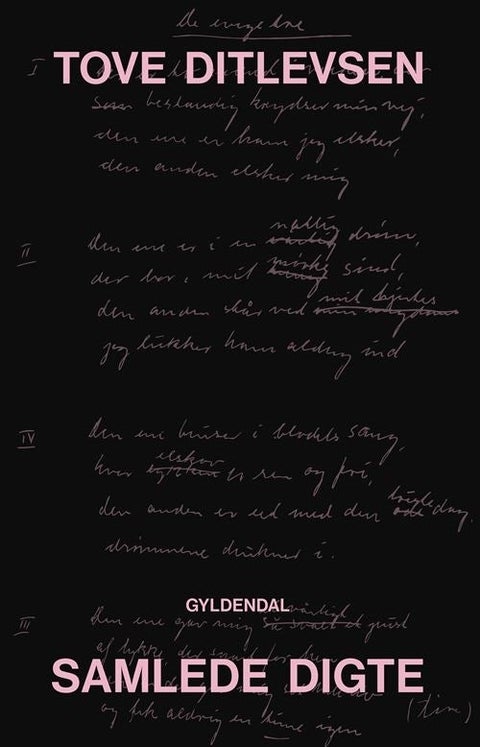 De evige tre
I
TOVE DITLEVSEN
som bestandig krydser min vej,
den ene er ham jeg elsker,
den anden elsker mig
II
Den ene er i en natlig drøm,
der bor i mit mørke sind,
den anden står ved mit hjertes
jeg lukker ham aldrig ind
IV
Den ene bruser i blodets sang,
hvor elskov er ren og fri,
den anden er eet med den dag,
drømmene drukner i.
GYLDENDAL
III
Den ene gav mig pust
af lykke der
SAMLEDE DIGTE
og fik aldrig en time igen